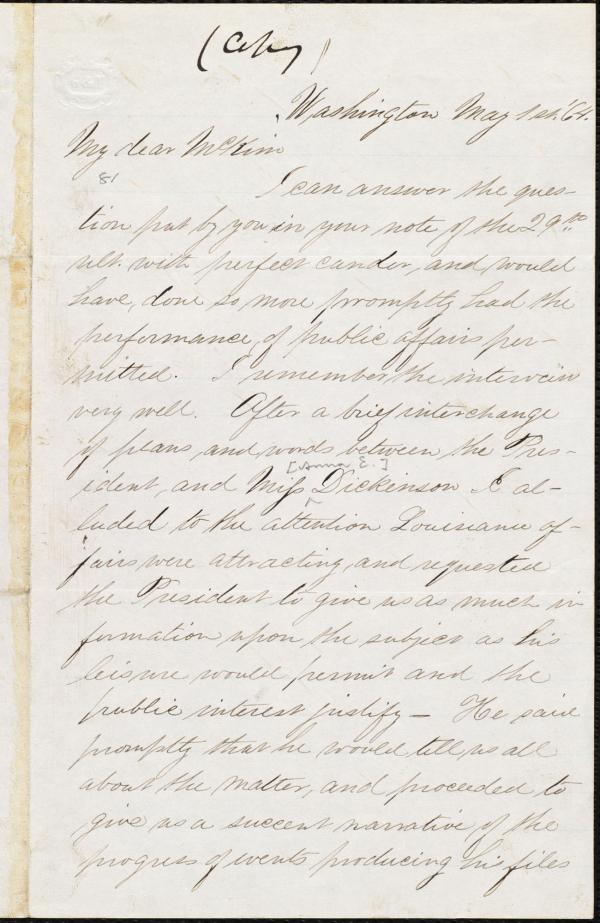 (Copy)
Washington May 1st. '64.
My dear McKim
81
I can answer the ques-
tion put by you in your note of the 29th
ult. with perfect candor, and would
have, done so more promptly had the
performance, of public affairs per-
mitted. I remember the interveiw
very well. After a brief interchange
of and words between the Pres-
[Anna E.]
ident, and Miss Dickinson I al-
luded to the attention Louisiana af-
fairs were attracting, and requested
the President to give us as much in
formation upon the subject as his
leisure would permit and the
public interest justify — He said
promptly that he would tell us all
about the matter, and proceeded to
give us a succent narrative, of the
progress of events producing his files